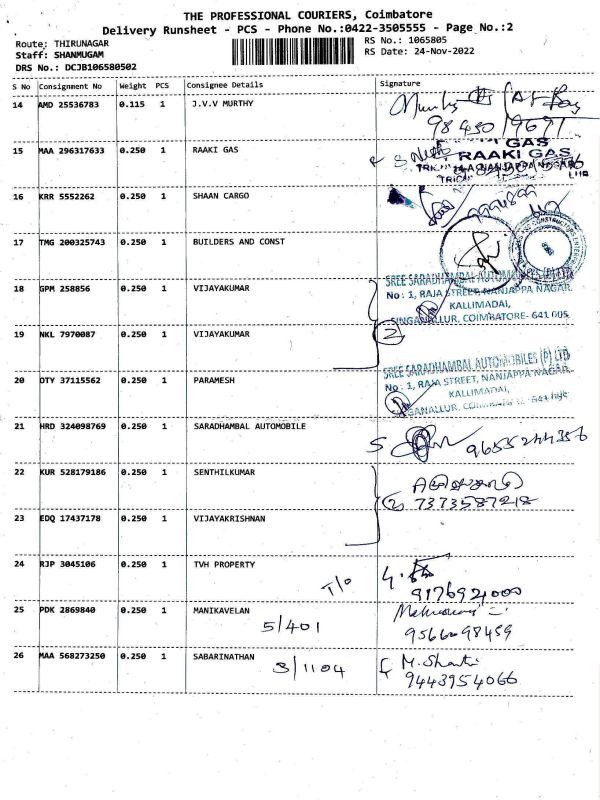 THE PROFESSIONAL COURIERS, Coimbatore
Delivery Runsheet - PCS - Phone No.:0422-3505555 - Page No.:2
Route: THIRUNAGAR RS No.: 1065805
Staff: SHANMUGAM RS Date: 24-Nov-2022
DRS No.: DCJB106580502
S No Consignment No Weight PCS Consignee Details Signature
14 AMD 25536783 0.115 1 J.V.V MURTHY
15 MAA 296317633 0.250 1 RAAKI GAS
RAAKI GAS
16 KRR 5552262 0.250 1 SHAAN CARGO
17 TMG 200325743 0.250 1 BUILDERS AND CONST
18 GPM 258856 0.250 1 VIJAYAKUMAR
SREE SARADHAMBAL AUTOMOBILES (P) LTD
No : 1, RAJA STREET, NANJAPPA NAGAR,
KALLIMADAI,
SINGANALLUR, COIMBATORE- 641 005
19 NKL 7970087 0.250 1 VIJAYAKUMAR
2
20 OTY 37115562 0.250 1 PARAMESH
SREE SARADHAMBAL AUTOMOBILES (P) LTD
No : 1, RAJA STREET, NANJAPPA NAGAR,
KALLIMADAI,
21 HRD 324098769 0.250 1 SARADHAMBAL AUTOMOBILE
9655244356
22 KUR 528179186 0.250 1 SENTHILKUMAR
7373587218
23 EDQ 17437178 0.250 1 VIJAYAKRISHNAN
24 RJP 3045106 0.250 1 TVH PROPERTY
T/O
25 PDK 2869840 0.250 1 MANIKAVELAN
5/401
26 MAA 568273250 0.250 1 SABARINATHAN 3/1104
M. Shanti
9443954066